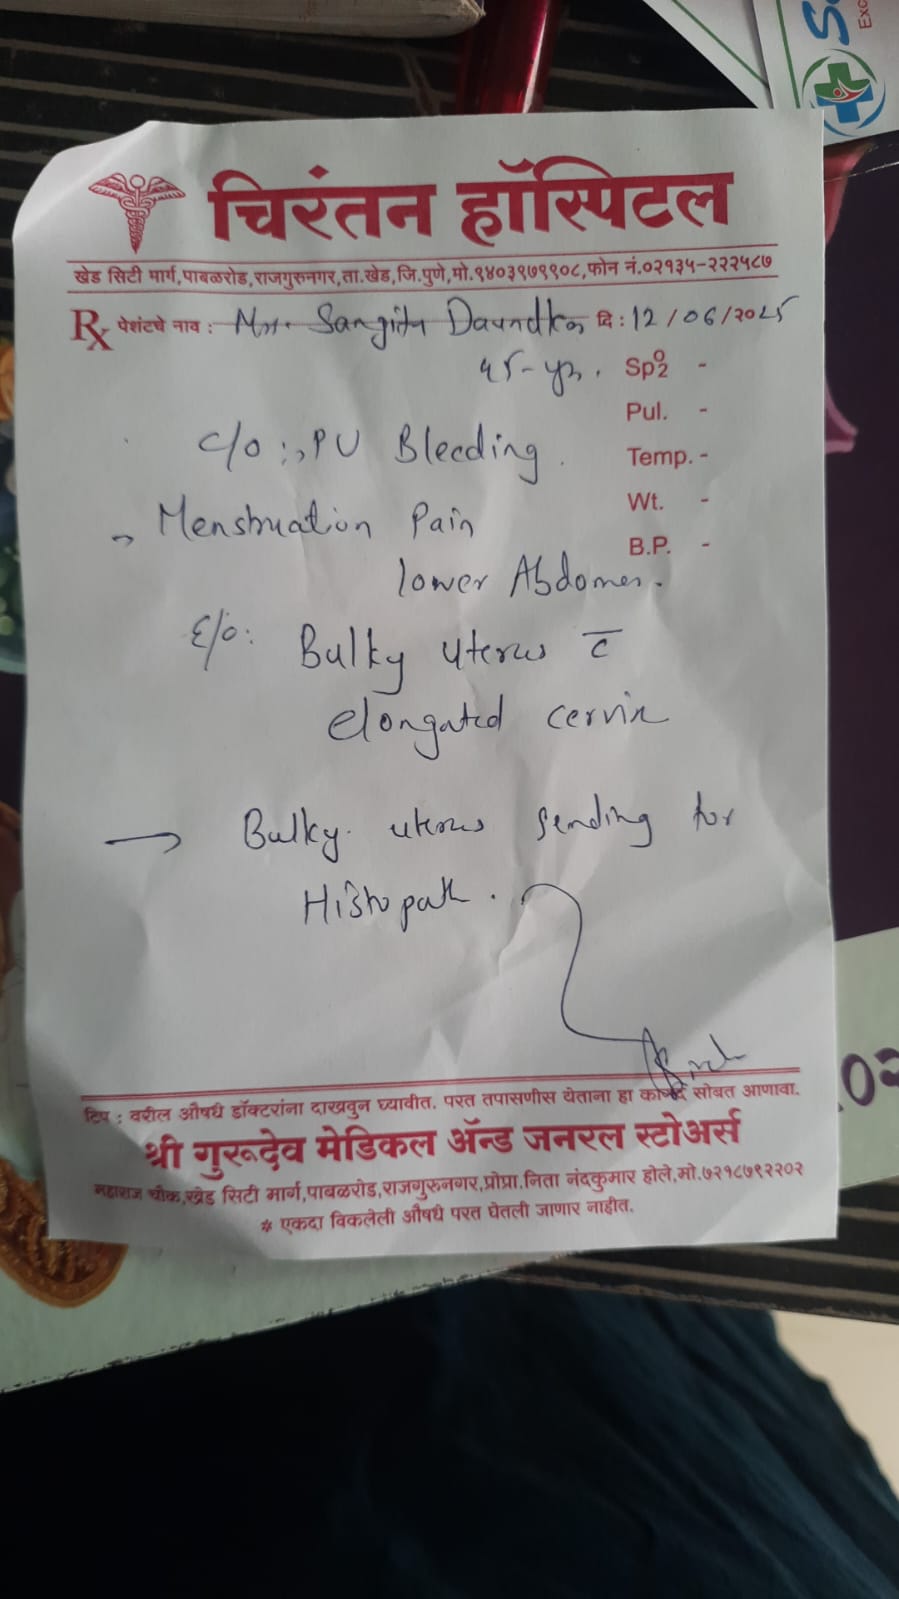 चिरंतन हॉस्पिटल
खेड सिटी मार्ग,पाबळरोड,राजगुरुनगर,ता.खेड,जि.पुणे,मो.९४०३९७९९०८,फोन नं.०२१३५-२२२५८७
Rx पेशंटचे नाव : Mrs. Sangita Daundkar दि : 12/06/२०25
45-yrs. Spo2 -
Pul. -
c/o :, PU Bleeding.
Temp. -
Menstruation Pain
Wt. -
B.P. -
lower Abdomen.
E/o: Bulky uterus c̄
elongated cervix
→ Bulky uterus sending for
Histopath.
टिप : वरील औषधे डॉक्टरांना दाखवुन घ्यावीत. परत तपासणीस येताना हा कागद सोबत आणावा.
श्री गुरूदेव मेडिकल ॲन्ड जनरल स्टोअर्स
महाराज चौक,खेड सिटी मार्ग,पाबळरोड,राजगुरुनगर,प्रोप्रा.निता नंदकुमार होले,मो.७२१८७९२२०२
* एकदा विकलेली औषधे परत घेतली जाणार नाहीत.